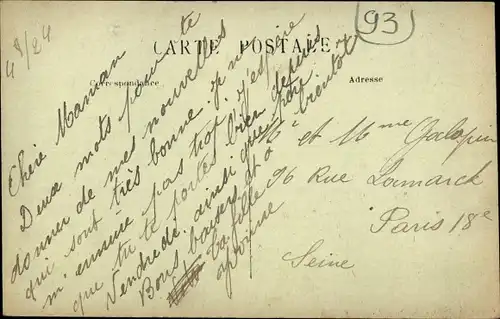 48/24
93
CARTE POSTALE
Correspondance
Adresse
Chère Maman
Deux mots pour te
donner de mes nouvelles
qui sont très bonne. je ne
m'ennuie pas trop, j'espère
que tu te portes bien depuis
Vendredi. ainsi que papa
Bons baisers et à bientôt
ta fille
Mr et Mme Galopin
96 Rue Lamarck
Paris 18e
Seine